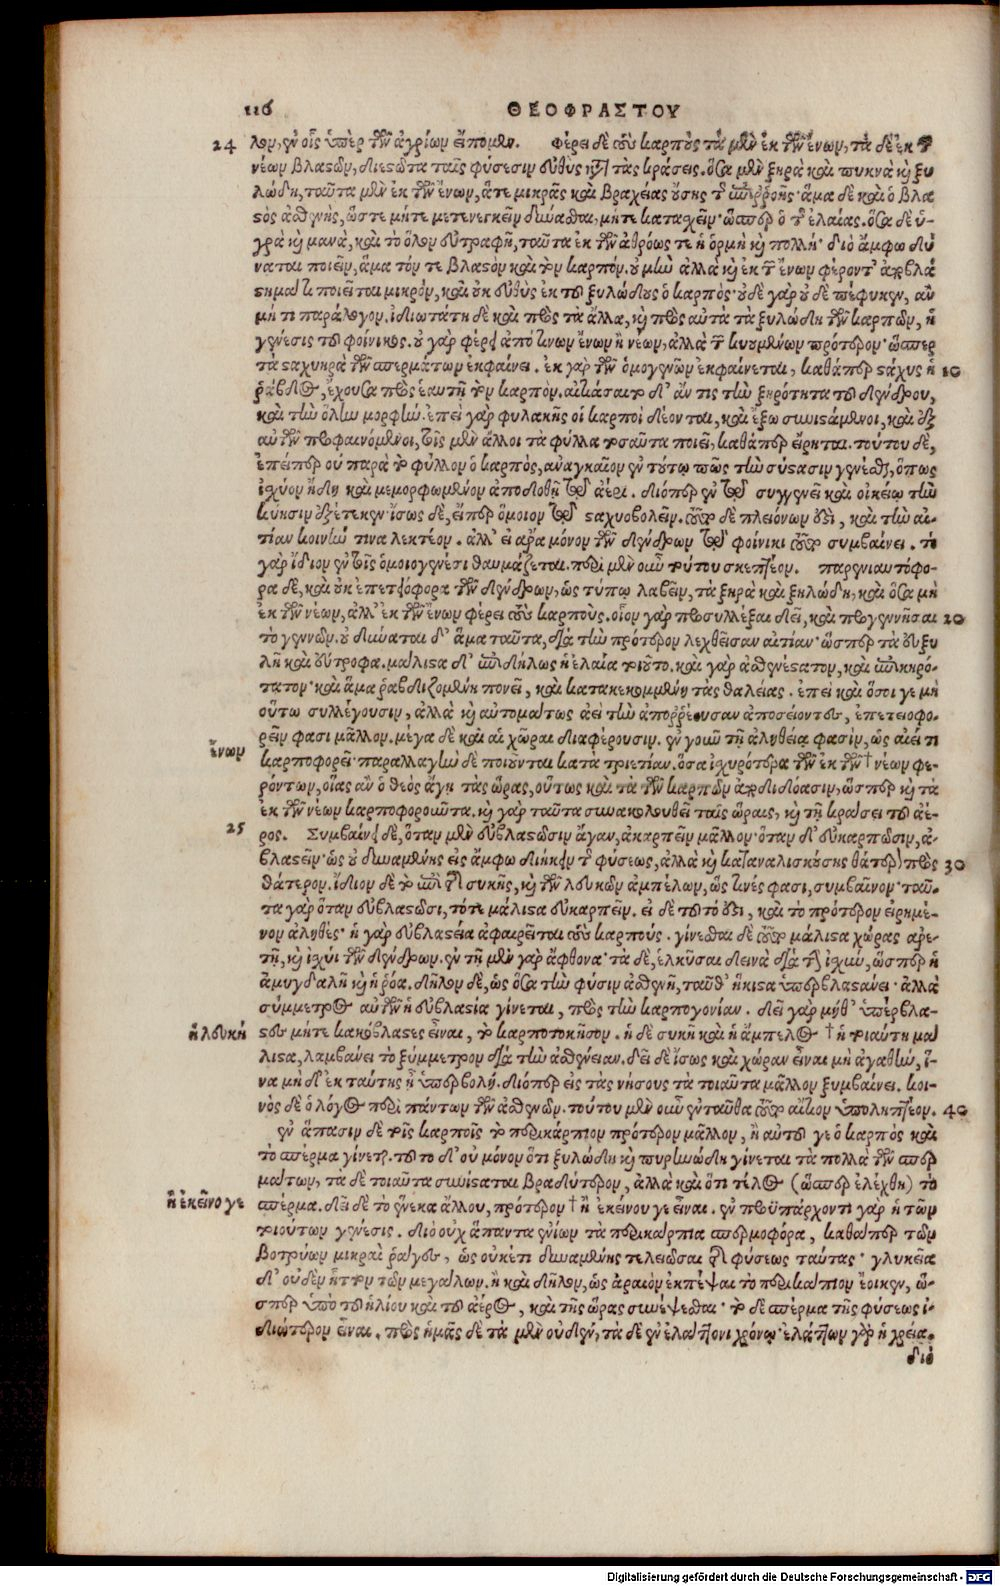 116
ΘΕΟΦΡΑΣΤΟΥ
24 λον, ἐν οἷς ὑπὲρ τῶν ἀγρίων εἴπομεν. φέρει δὲ τοὺς καρποὺς τὰ μὲν ἐκ τῶν ἔνων, τὰ δὲ ἐκ τῶν
νέων βλαστῶν, διεστῶτα ταῖς φύσεσιν εὐθὺς κατὰ τὰς κράσεις. ὅσα μὲν ξηρὰ καὶ πυκνὰ καὶ ξυ
λώδη, ταῦτα μὲν ἐκ τῶν ἔνων, ἅτε μικρᾶς καὶ βραχείας οὔσης τῆς ἐπιρροῆς· ἅμα δὲ καὶ ὁ βλα
στὸς ἀσθενὴς, ὥστε μήτε μετενεγκεῖν δύνασθαι, μήτε κατασχεῖν· ὥσπερ ὁ τῆς ἐλαίας. ὅσα δὲ ὑ-
γρὰ καὶ μανὰ, καὶ τὸ ὅλον εὐτραφῆ, ταῦτα ἐκ τῶν ἀθρόως τε ἡ ὁρμὴ καὶ πολλή· διὸ ἄμφω δύ
νανται ποιεῖν, ἅμα τόν τε βλαστὸν καὶ τὸν καρπόν. οὐ μὴν ἀλλὰ καὶ ἐκ τῶν ἔνων φέροντα παραβλα
στήματι ποιεῖται μικρὸν, καὶ οὐκ εὐθὺς ἐκ τοῦ ξυλώδους ὁ καρπὸς· οὐδὲ γὰρ οὐδὲ πέφυκεν, ἂν
μή τι παράλογον. ἰδιωτάτη δὲ καὶ πρὸς τὰ ἄλλα, καὶ πρὸς αὐτὰ τὰ ξυλώδη τῶν καρπῶν, ἡ
γένεσις τοῦ φοίνικος. οὐ γὰρ φέρει ἀπό τινων ἔνων ἢ νέων, ἀλλὰ τῶν κυουμένων πρότερον· ὥσπερ
τὰ σταχυηρὰ τῶν σπερμάτων ἐκφαίνει. ἐκ γὰρ τῶν ὁμογενῶν ἐκφαίνεται, καθάπερ στάχυς ἢ 10
ῥάβδος, ἔχουσα πρὸς ἑαυτῇ τὸν καρπὸν. αἰτιάσαιτο δ' ἄν τις τὴν ξηρότητα τοῦ δένδρου,
καὶ τὴν ὅλην μορφήν. ἐπεὶ γὰρ φυλακῆς οἱ καρποὶ δέονται, καὶ ἔξω συνιστάμενοι, καὶ ἐξ
αὐτῶν προφαινόμενοι, τοῖς μὲν ἄλλοι τὰ φύλλα τοσαῦτα ποιεῖ, καθάπερ εἴρηται. τούτου δὲ,
ἐπείπερ οὐ παρὰ τὸ φύλλον ὁ καρπὸς, ἀναγκαῖον ἐν τούτῳ πως τὴν σύστασιν γενέσθαι, ὅπως
ἰσχύον ἤδη καὶ μεμορφωμένον ἀποδοθῇ τῷ ἀέρι. διόπερ ἐν τῷ συγγενεῖ καὶ οἰκείῳ τὴν
κύησιν ἐξέτεκεν· ἴσως δὲ, εἴπερ ὅμοιον τῷ σταχυοβολεῖν. τοῦτο δὲ πλειόνων ἐστὶ, καὶ τὴν αἰ-
τίαν κοινήν τινα λεκτέον. ἀλλ' εἰ ἄρα μόνον τῶν δένδρων τῷ φοίνικι τοῦτο συμβαίνει. τὸ
γὰρ ἴδιον ἐν τοῖς ὁμοιογενέσι θαυμάζεται. περὶ μὲν οὖν τούτου σκεπτέον. παρενιαυτόφο-
ρα δὲ, καὶ οὐκ ἐπετειόφορα τῶν δένδρων, ὡς τύπῳ λαβεῖν, τὰ ξηρὰ καὶ ξηλώδη, καὶ ὅσα μὴ
ἐκ τῶν νέων, ἀλλ' ἐκ τῶν ἔνων φέρει τοὺς καρποὺς. οἷον γὰρ προσυλλέξαι δεῖ, καὶ προγεννῆσαι 20
τὸ γεννῶν. οὐ δύναται δ' ἅμα ταῦτα, διὰ τὴν πρότερον λεχθεῖσαν αἰτίαν· ὥσπερ τὰ εὐξυ
λῆ καὶ εὔτροφα. μάλιστα δ' ἐπιδήλως ἡ ἐλαία τοιοῦτο, καὶ γὰρ ἀσθενέστατον, καὶ ἐπικηρό-
τατον· καὶ ἅμα ῥαβδιζομένη πονεῖ, καὶ κατακεκομμένη τὰς θαλείας. ἐπεὶ καὶ ὅσοι γε μὴ
οὕτω συλλέγουσιν, ἀλλὰ καὶ αὐτομάτως ἀεὶ τὴν ἀπορρέουσαν ἀποσείοντες, ἐπετειοφο-
ρεῖν φασι μᾶλλον. μέγα δὲ καὶ αἱ χῶραι διαφέρουσιν. ἐν γοῦν τῇ ἀληθείᾳ φασὶν, ὡς αἰεί τι
ἔνων
καρποφορεῖ· παραλλαγὴν δὲ ποιοῦνται κατὰ τριετίαν. ὅσα ἰσχυρότερα τῶν ἐκ τῶν † νέων φε-
ρόντων, οἵας ἂν ὁ θεὸς ἄγῃ τὰς ὥρας, οὕτως καὶ τὰ τῶν καρπῶν ἀποδιδόασιν, ὥσπερ καὶ τὰ
ἐκ τῶν νέων καρποφοροῦντα. καὶ γὰρ ταῦτα συνακολουθεῖ ταῖς ὥραις, καὶ τῇ κράσει τοῦ ἀέ-
25 ρος. Συμβαίνει δὲ, ὅταν μὲν εὐβλαστῶσιν ἄγαν, ἀκαρπεῖν μᾶλλον· ὅταν δ' εὐκαρπῶσιν, ἀ-
βλαστεῖν· ὡς οὐ δυναμένης εἰς ἄμφω διήκειν τῆς φύσεως, ἀλλὰ καὶ καταναλισκούσης θάτερον πρὸς 30
θάτερον. ἴδιον δὲ τὸ ἐπὶ τῆς συκῆς, καὶ τῶν λευκῶν ἀμπέλων, ὥς τινές φασι, συμβαῖνον· ταῦ-
τα γὰρ ὅταν εὐβλαστῶσι, τότε μάλιστα εὐκαρπεῖν. εἰ δὲ τοῦτό ἐστι, καὶ τὸ πρότερον εἰρημέ-
νον ἀληθὲς· ἡ γὰρ εὐβλαστεία ἀφαιρεῖται τοὺς καρπούς. γίνεσθαι δὲ τοῦτο μάλιστα χώρας ἀρε-
τῇ, καὶ ἰσχύϊ τῶν δένδρων. ἐν τῇ μὲν γὰρ ἄφθονα· τὰ δὲ, ἑλκύσαι δεινὰ διὰ τὴν ἰσχύν, ὥσπερ ἡ
ἀμυγδαλῆ καὶ ἡ ῥόα. δῆλον δὲ, ὡς ὅσα τὴν φύσιν ἀσθενῆ, ταῦθ' ἥκιστα ὑπερβλαστάνει· ἀλλὰ
σύμμετρος αὐτῶν ἡ εὐβλαστία γίνεται, πρὸς τὴν καρπογονίαν. δεῖ γὰρ μήθ' ὑπερβλα-
ἡ λευκή
στὲς μήτε κακόβλαστες εἶναι, τὸ καρποτοκῆσον. ἡ δὲ συκῆ καὶ ἡ ἄμπελος † ἡ τοιαύτη μά
λιστα, λαμβάνει τὸ ξύμμετρον διὰ τὴν ἀσθένειαν. δεῖ δὲ ἴσως καὶ χώραν εἶναι μὴ ἀγαθὴν, ἵ-
να μὴ δ' ἐκ ταύτης ᾖ ὑπερβολή. διόπερ εἰς τὰς νήσους τὰ τοιαῦτα μᾶλλον ξυμβαίνει. κοι-
νὸς δὲ ὁ λόγος περὶ πάντων τῶν ἀσθενῶν. τούτου μὲν οὖν ἐνταῦθα τοῦτο αἴτιον ὑποληπτέον. 40
ἐν ἅπασιν δὲ τοῖς καρποῖς τὸ περικάρπιον πρότερον μᾶλλον, ἢ αὐτοῦ γε ὁ καρπὸς καὶ
τὸ σπέρμα γίνεται. τοῦτο δ' οὐ μόνον ὅτι ξυλώδη καὶ πυρηνώδη γίνεται τὰ πολλὰ τῶν σπερ
μάτων, τὰ δὲ τοιαῦτα συνίσταται βραδύτερον, ἀλλὰ καὶ ὅτι τέλος (ὥσπερ ἐλέχθη) τὸ
ἢ ἐκεῖνο γε
σπέρμα. δεῖ δὲ τὸ ἕνεκα ἄλλου, πρότερον † ἢ ἐκείνου γε εἶναι. ἐν προϋπάρχοντι γὰρ ἡ τῶν
τοιούτων γένεσις. διὸ οὐχ ἅπαντα ἐνίων τὰ περικάρπια σπερμοφόρα, καθάπερ τῶν
βοτρύων μικραὶ ῥάγες, ὡς οὐκέτι δυναμένης τελειῶσαι τῆς φύσεως ταύτας· γλυκεῖα
δ' οὐδὲν ἧττον τῶν μεγάλων. ᾗ καὶ δῆλον, ὡς ἀραιὸν ἐκπέψαι τὸ περικάρπιον ἔοικεν, ὥ-
σπερ ὑπὸ τοῦ ἡλίου καὶ τοῦ ἀέρος, καὶ τῆς ὥρας συνέψεσθαι· τὸ δὲ σπέρμα τῆς φύσεως ἰ-
διώτερον εἶναι. πρὸς ἡμᾶς δὲ τὰ μὲν οὐδὲν, τὰ δὲ ἐν ἐλάττονι χρόνῳ· ἐλάττων γὰρ ἡ χρεία.
διὸ
Digitalisierung gefördert durch die Deutsche Forschungsgemeinschaft - DFG